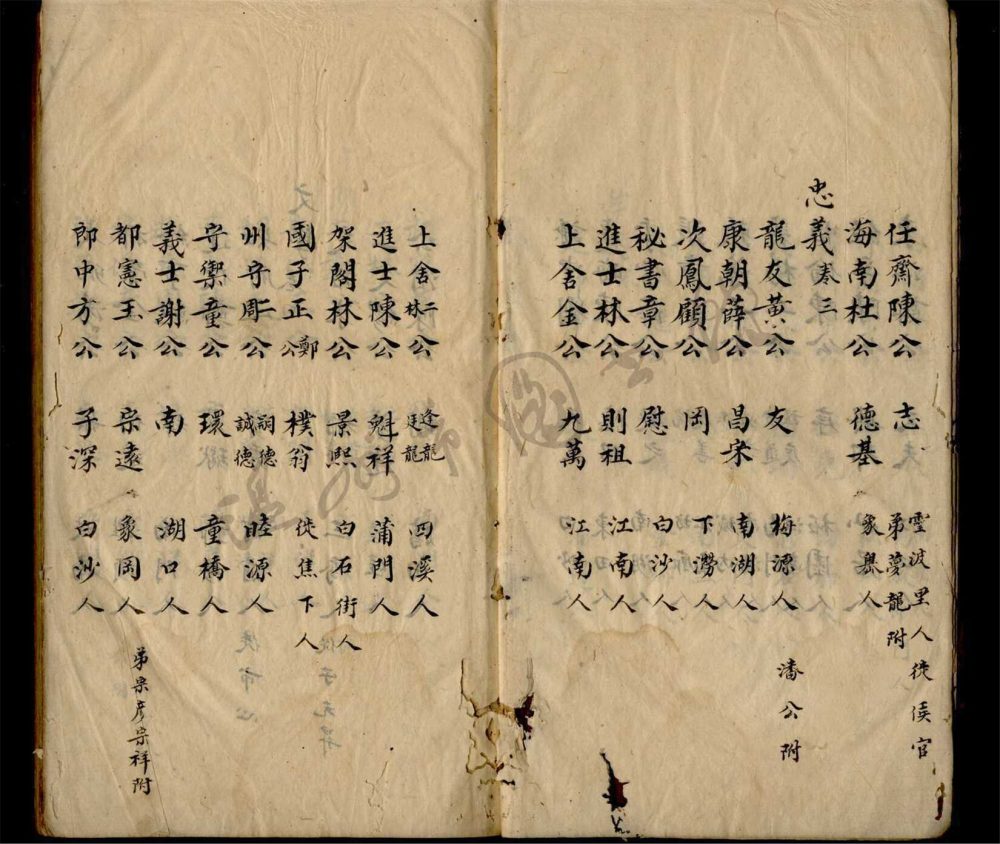 任齋陳公 志 雪波里人徙侯官 弟夢龍附
海南杜公 德基 象嶴人
忠義卷三
龍友黃公 友 梅源人 潘公附
康朝薛公 昌宋 南湖人
次鳳顧公 岡 下澇人
秘書章公 慰 白沙人
進士林公 則祖 江南人
上舍金公 九萬 江南人
上舍二林公 逢龍 廷龍 四溪人
進士陳公 魁祥 蒲門人
架閣林公 景熙 白石街人
國子正鄭公 樸翁 徙焦下人
州守二周公 嗣德 誠德 睦源人
守禦童公 環 童橋人
義士謝公 南 湖口人
都憲王公 宗遠 象岡人 弟宗彥宗祥附
郎中方公 子深 白沙人